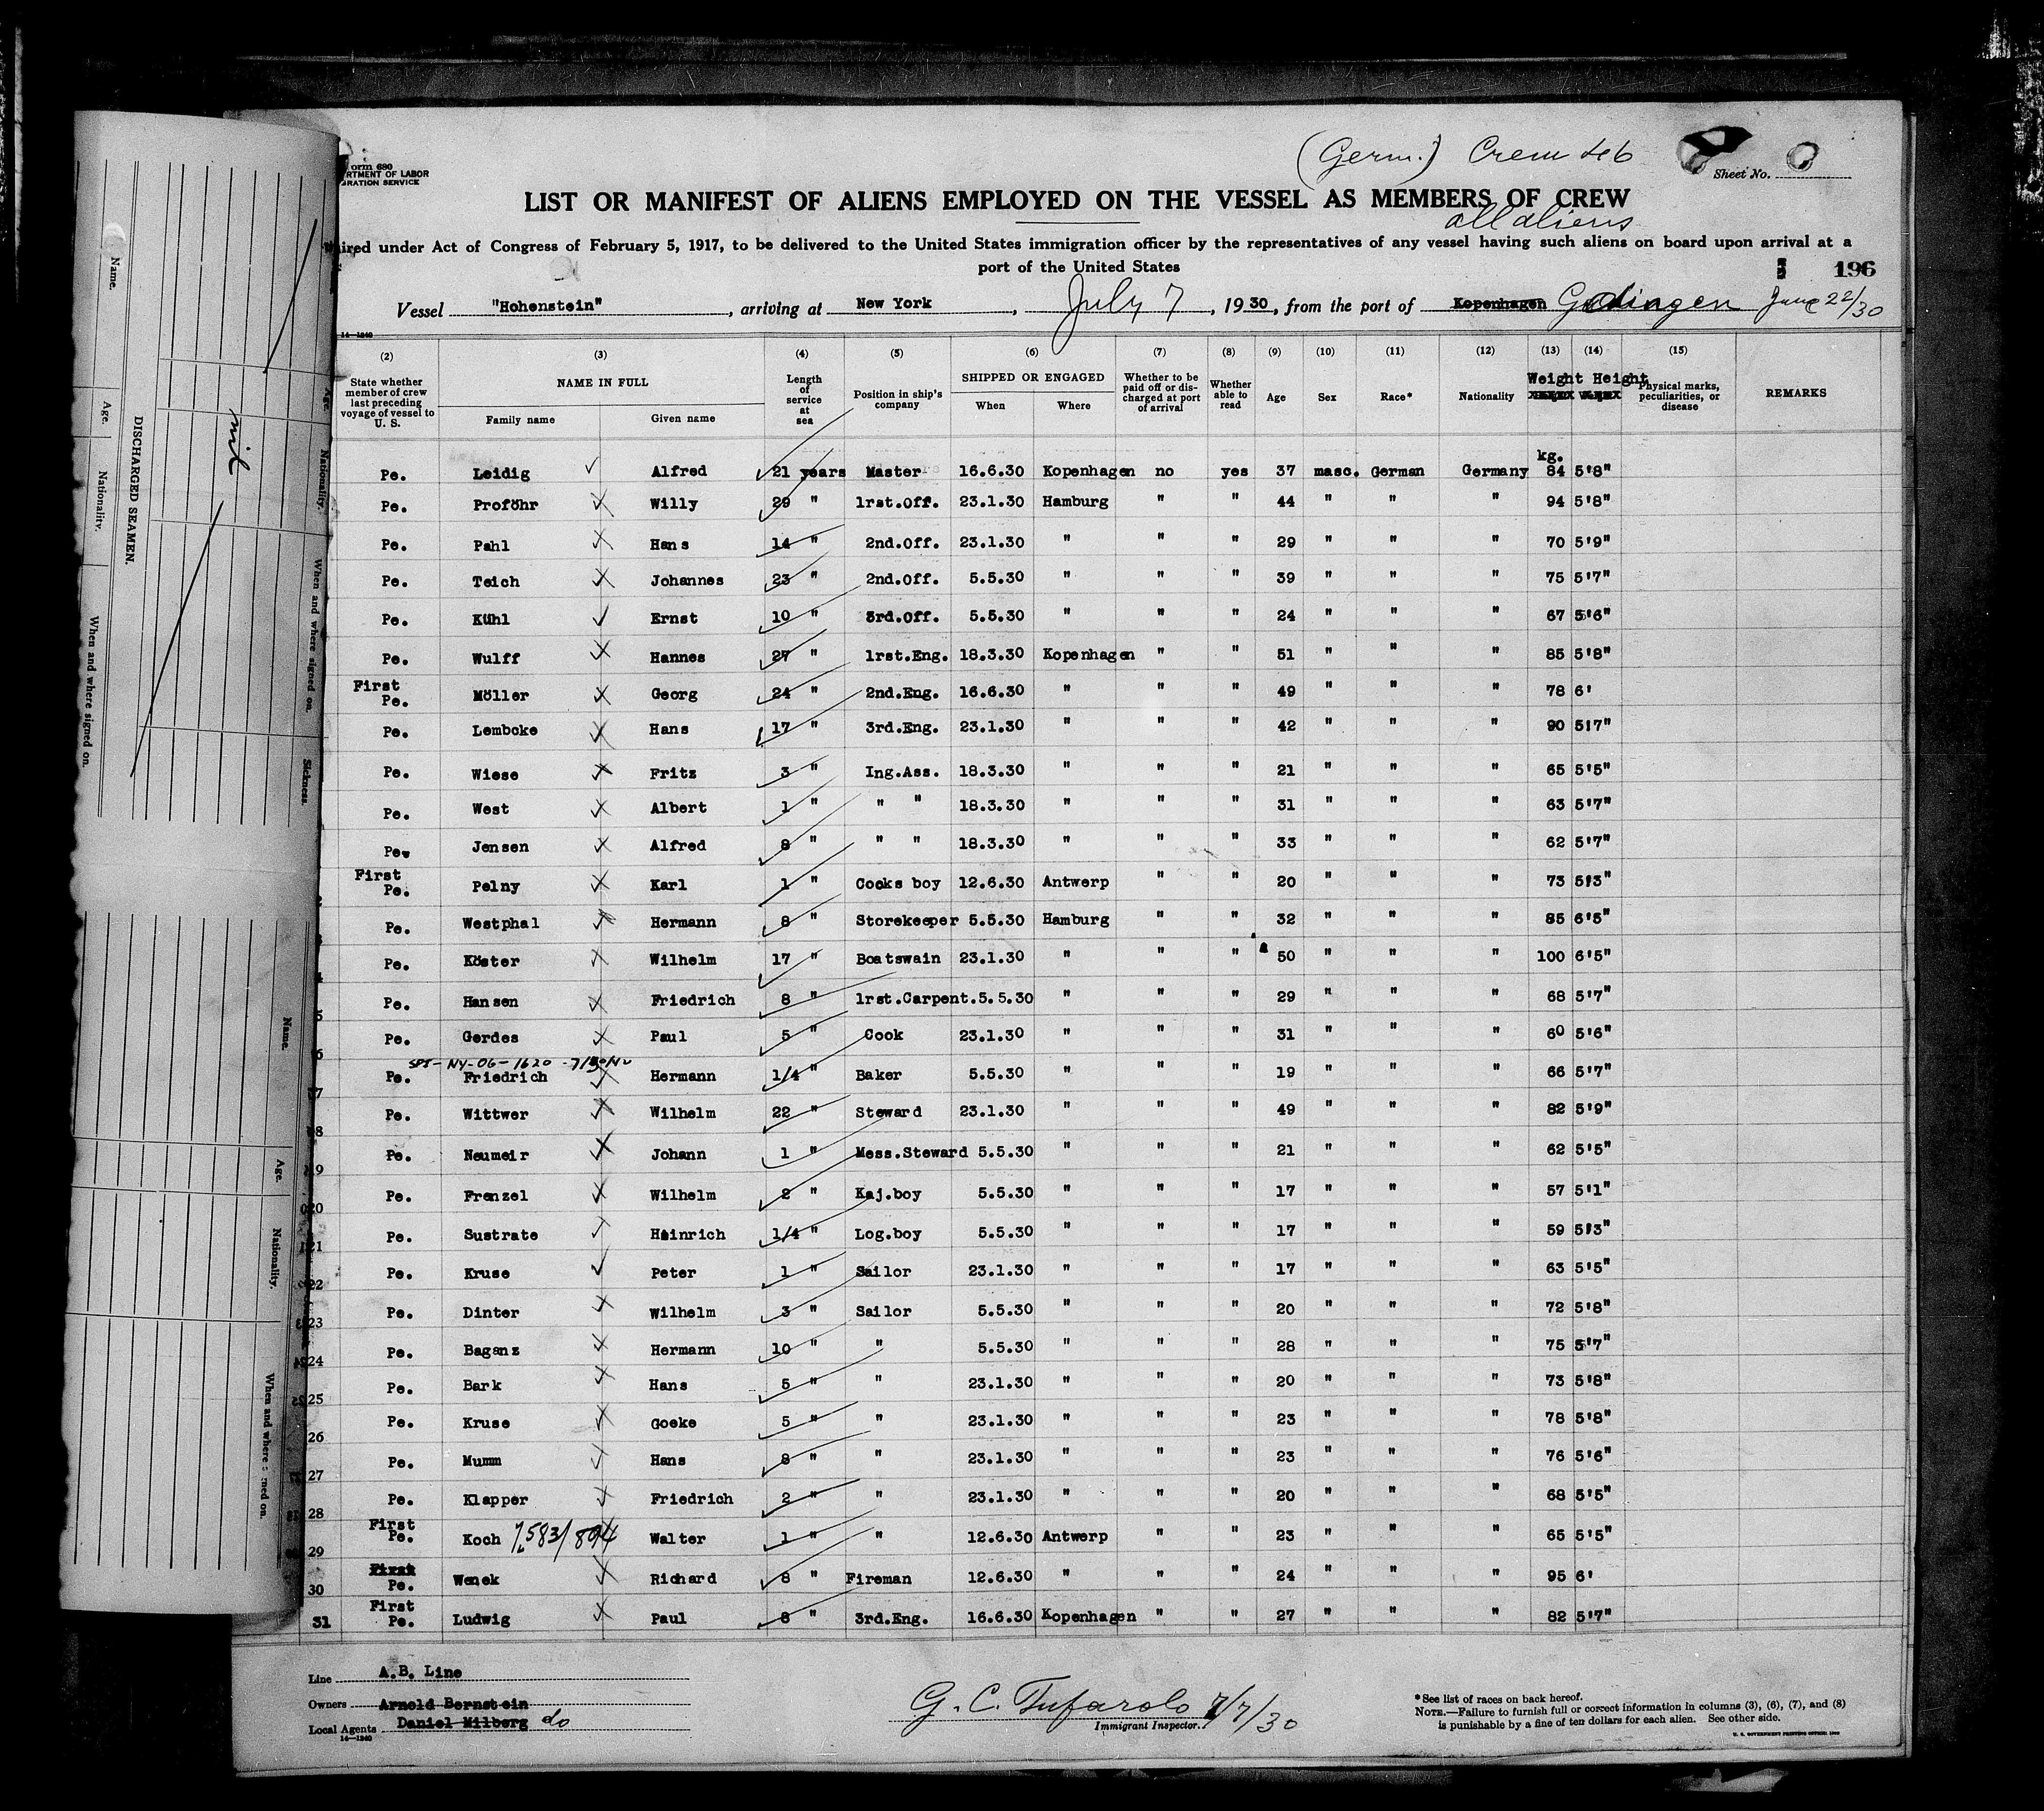 (Germ.) Crew 46
Sheet No.
orm 680
RTMENT OF LABOR
GRATION SERVICE
LIST OR MANIFEST OF ALIENS EMPLOYED ON THE VESSEL AS MEMBERS OF CREW
all aliens
ired under Act of Congress of February 5, 1917, to be delivered to the United States immigration officer by the representatives of any vessel having such aliens on board upon arrival at a
port of the United States
196
Vessel "Hohenstein", arriving at New York, July 7, 1930, from the port of Kopenhagen Gdingen June 22/30
14—1240
(2) (3) (4) (5) (6) (7) (8) (9) (10) (11) (12) (13) (14) (15)
State whether member of crew last preceding voyage of vessel to U. S. NAME IN FULL Family name Given name Length of service at sea Position in ship's company SHIPPED OR ENGAGED When Where Whether to be paid off or discharged at port of arrival Whether able to read Age Sex Race* Nationality Weight Height Physical marks, peculiarities, or disease REMARKS
kg.
Pe. Leidig Alfred 21 years Master 16.6.30 Kopenhagen no yes 37 masc. German Germany 84 5'8"
Pe. Proföhr Willy 29 " 1rst.Off. 23.1.30 Hamburg " " 44 " " " 94 5'8"
Pe. Pahl Hans 14 " 2nd.Off. 23.1.30 " " " 29 " " " 70 5'9"
Pe. Teich Johannes 23 " 2nd.Off. 5.5.30 " " " 39 " " " 75 5'7"
Pe. Kühl Ernst 10 " 3rd.Off. 5.5.30 " " " 24 " " " 67 5'6"
Pe. Wulff Hannes 27 " 1rst.Eng. 18.3.30 Kopenhagen " " 51 " " " 85 5'8"
First Pe. Möller Georg 24 " 2nd.Eng. 16.6.30 " " " 49 " " " 78 6'
Pe. Lembcke Hans 17 " 3rd.Eng. 23.1.30 " " " 42 " " " 90 5'7"
Pe. Wiese Fritz 3 " Ing.Ass. 18.3.30 " " " 21 " " " 65 5'5"
Pe. West Albert 1 " " " 18.3.30 " " " 31 " " " 63 5'7"
Pe. Jensen Alfred 8 " " " 18.3.30 " " " 33 " " " 62 5'7"
First Pe. Pelny Karl 1 " Cooks boy 12.6.30 Antwerp " " 20 " " " 73 5'3"
Pe. Westphal Hermann 8 " Storekeeper 5.5.30 Hamburg " " 32 " " " 85 6'5"
Pe. Köster Wilhelm 17 " Boatswain 23.1.30 " " " 50 " " " 100 6'5"
Pe. Hansen Friedrich 8 " 1rst.Carpent. 5.5.30 " " " 29 " " " 68 5'7"
Pe. Gerdes Paul 5 " Cook 23.1.30 " " " 31 " " " 60 5'6"
Pe. Friedrich Hermann 1/4 " Baker 5.5.30 " " " 19 " " " 66 5'7"
Pe. Wittwer Wilhelm 22 " Steward 23.1.30 " " " 49 " " " 82 5'9"
Pe. Neumeir Johann 1 " Mess.Steward 5.5.30 " " " 21 " " " 62 5'5"
Pe. Frenzel Wilhelm 2 " Kaj.boy 5.5.30 " " " 17 " " " 57 5'1"
Pe. Sustrate Heinrich 1/4 " Log.boy 5.5.30 " " " 17 " " " 59 5'3"
Pe. Kruse Peter 1 " Sailor 23.1.30 " " " 17 " " " 63 5'5"
Pe. Dinter Wilhelm 3 " Sailor 5.5.30 " " " 20 " " " 72 5'8"
Pe. Baganz Hermann 10 " " 5.5.30 " " " 28 " " " 75 5'7"
Pe. Bark Hans 5 " " 23.1.30 " " " 20 " " " 73 5'8"
Pe. Kruse Goeke 5 " " 23.1.30 " " " 23 " " " 78 5'8"
Pe. Mumm Hans 8 " " 23.1.30 " " " 23 " " " 76 5'6"
Pe. Klapper Friedrich 2 " " 23.1.30 " " " 20 " " " 68 5'5"
First Pe. Koch Walter 1 " " 12.6.30 Antwerp " " 23 " " " 65 5'5"
30 First Pe. Wenek Richard 8 " Fireman 12.6.30 " " " 24 " " " 95 6'
31 First Pe. Ludwig Paul 8 " 3rd.Eng. 16.6.30 Kopenhagen " " 27 " " " 82 5'7"
Line A.B. Line
Owners Arnold Bernstein
Local Agents Daniel Milberg do
14—1240
G. C. Tufarolo 7/7/30
Immigrant Inspector.
*See list of races on back hereof.
NOTE.—Failure to furnish full or correct information in columns (3), (6), (7), and (8)
is punishable by a fine of ten dollars for each alien. See other side.
U. S. GOVERNMENT PRINTING OFFICE
DISCHARGED SEAMEN.
Name. Age. Nationality. When and where signed on.
Age. Nationality. When and where signed on. Sickness.
nil
Name. Age. Nationality.